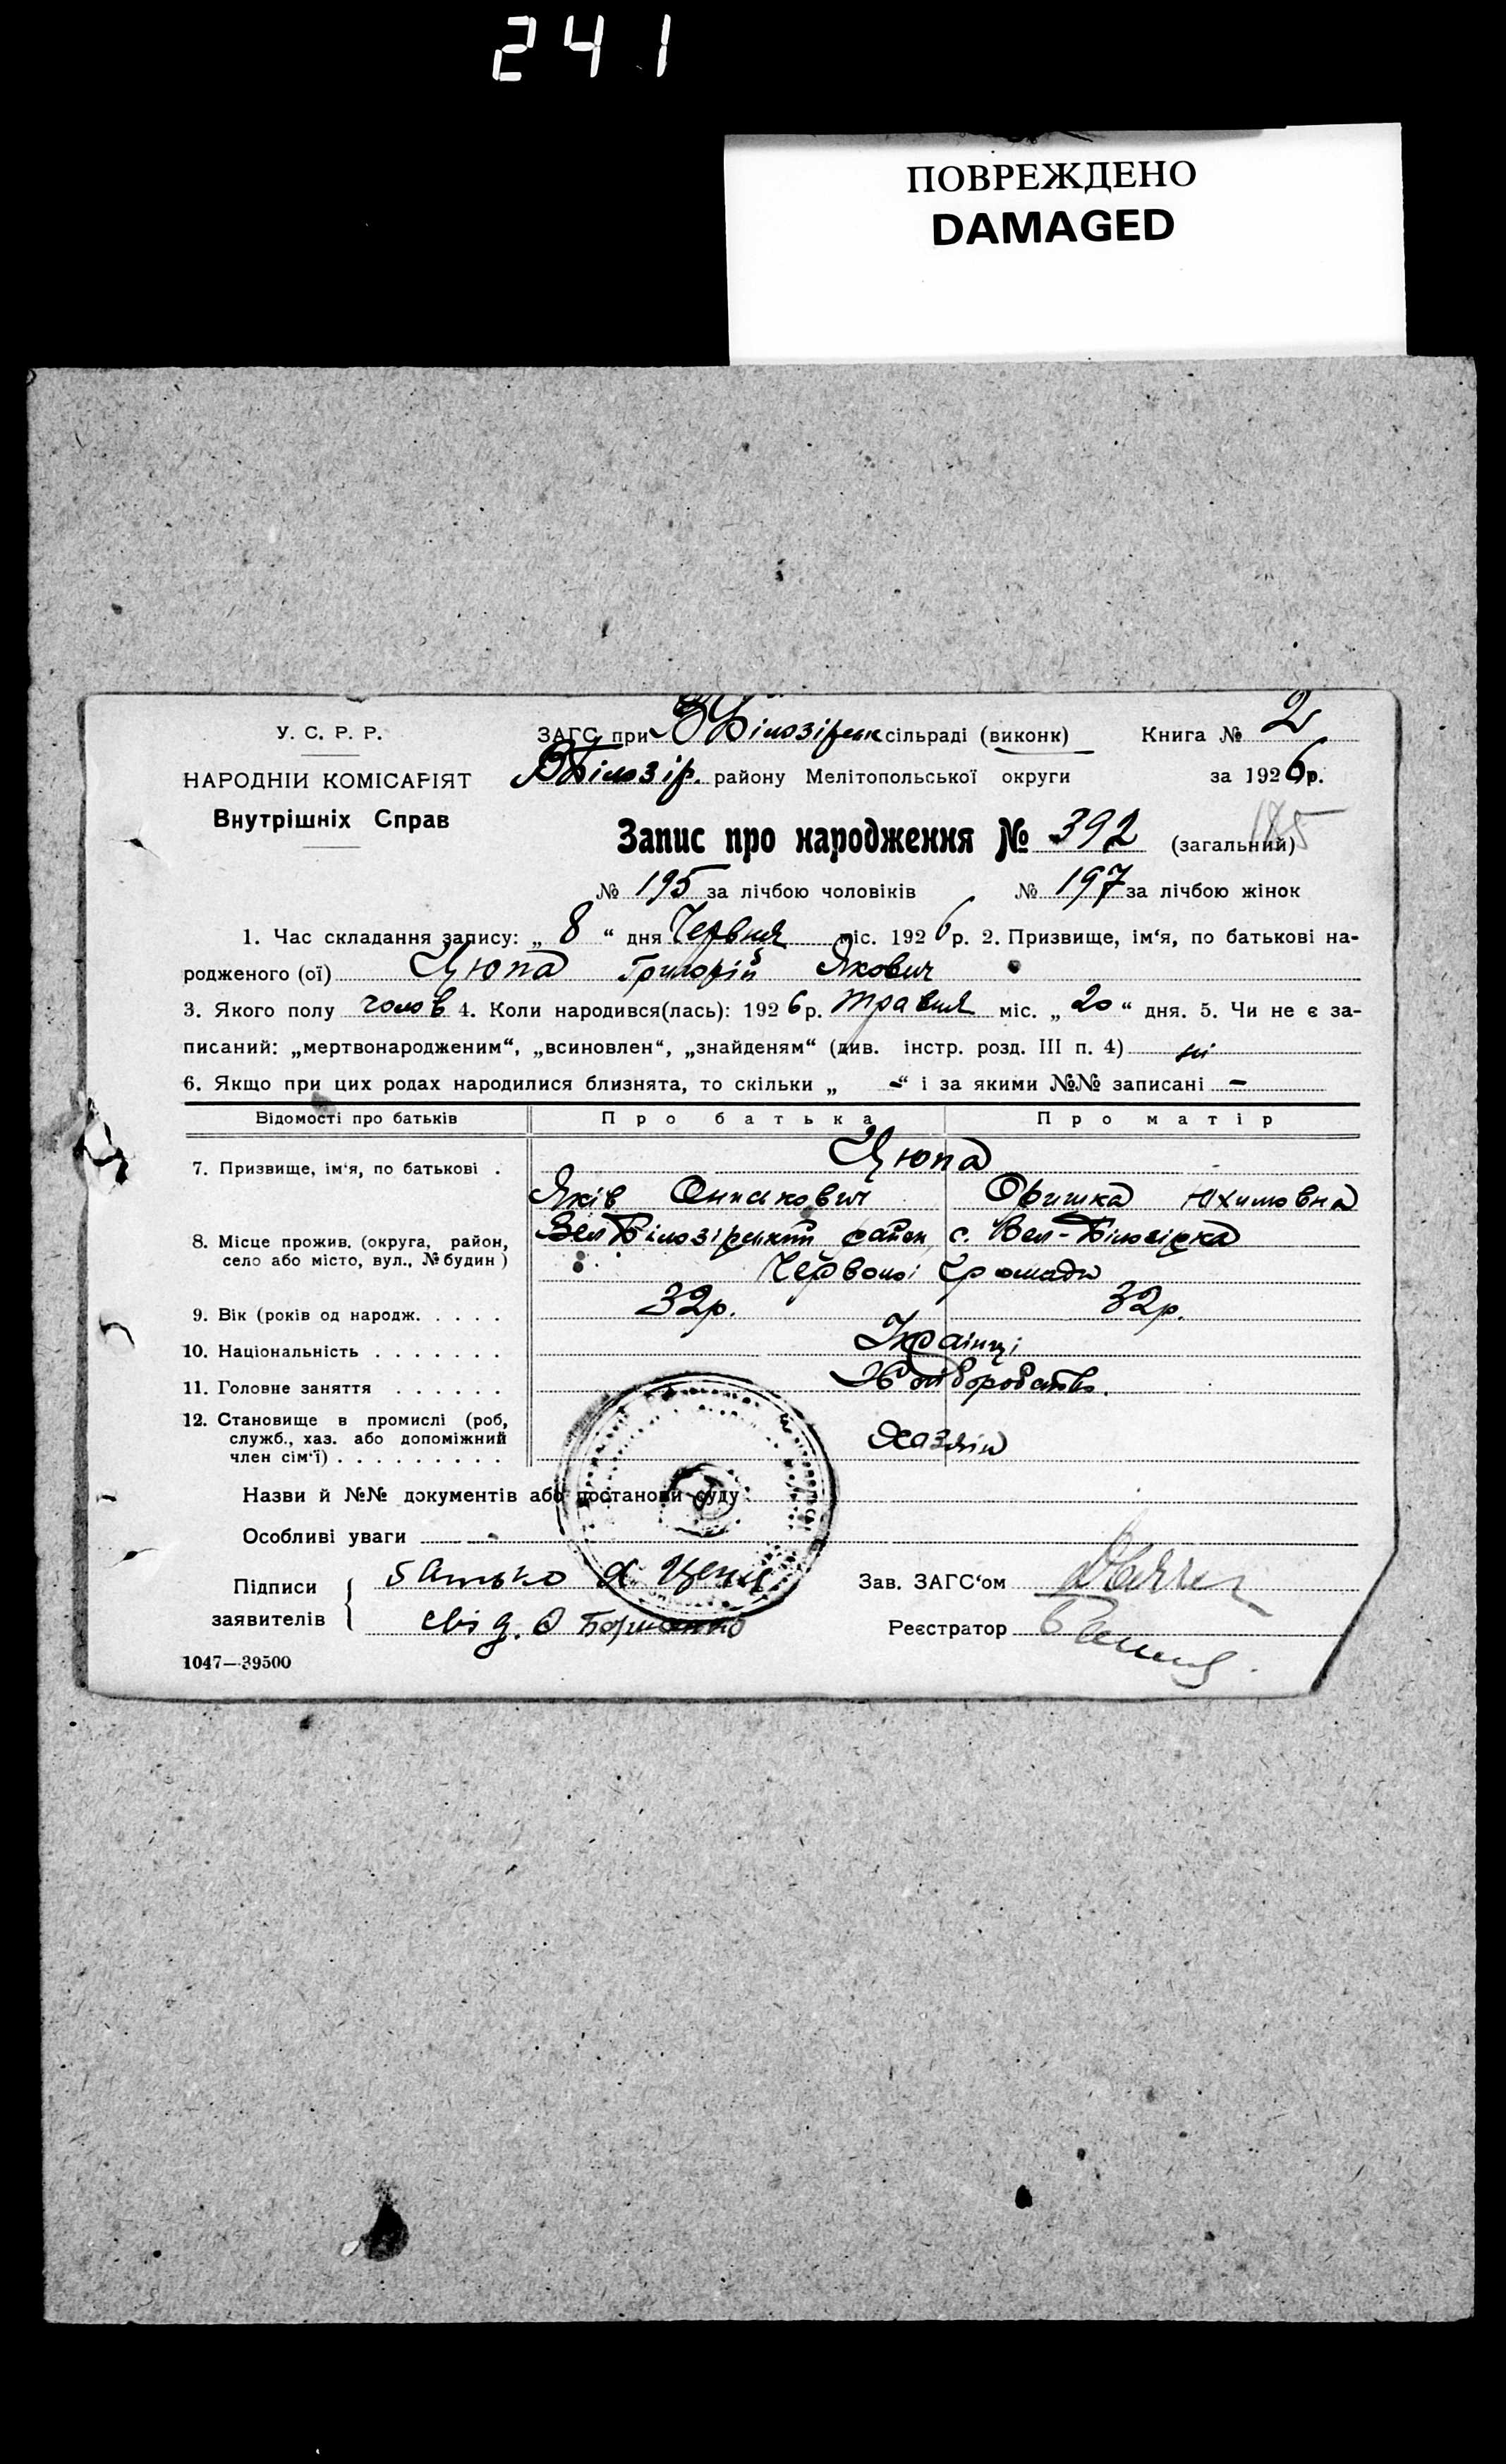 241
ПОВРЕЖДЕНО
DAMAGED
У. С. Р. Р.
НАРОДНІЙ КОМІСАРІЯТ
Внутрішніх Справ
ЗАГС при В Білозірськ сільраді (виконк) Книга № 2
В Білозір. району Мелітопольської округи за 1926 р.
Запис про народження № 392 (загальний) 185
№ 195 за лічбою чоловіків № 197 за лічбою жінок
1. Час складання запису: „ 8 “ дня Червня міс. 1926 р. 2. Призвище, ім‘я, по батькові на-
родженого (ої) Цюпа Григорій Якович
3. Якого полу чолов 4. Коли народився(лась): 1926 р. травня міс. „ 20 “ дня. 5. Чи не є за-
писаний: „мертвонародженим“, „всиновлен“, „знайденям“ (див. інстр. розд. III п. 4) ні
6. Якщо при цих родах народилися близнята, то скільки „ -“ і за якими №№ записані -
Відомості про батьків Про батька Про матір
7. Призвище, ім‘я, по батькові . Цюпа
Яків Ониськович Оришка Юхимовна
8. Місце прожив. (округа, район, село або місто, вул., № будин) Вел Білозірський район с. Вел-Білозірка
Червоної Громади
9. Вік (років од народж. . . . . 32р. 32р.
10. Національність . . . . . . . Українці
11. Головне заняття . . . . . . Хліборобство.
12. Становище в промислі (роб,
служб., хаз. або допоміжний
член сім‘ї) . . . . . . . . . Хазяїн
Назви й №№ документів або постанови суду
Особливі уваги
Підписи заявителів
батько Я
свід. О
Зав. ЗАГС‘ом
Реєстратор
1047—39500